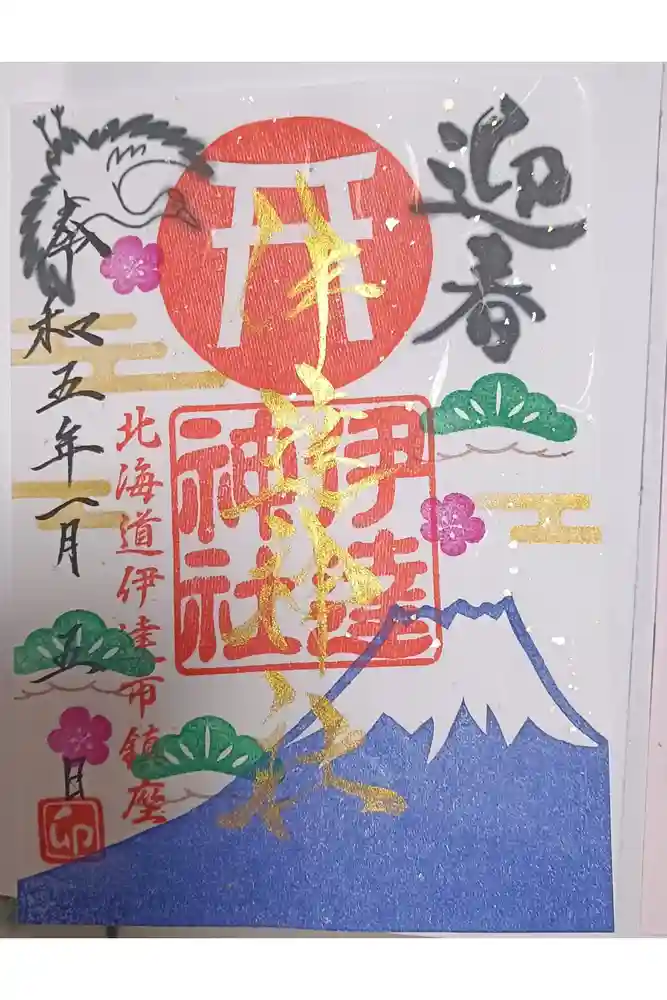 迎春
伊達神社
伊達
神社
北海道伊達市鎮座
令和五年一月五日
卯